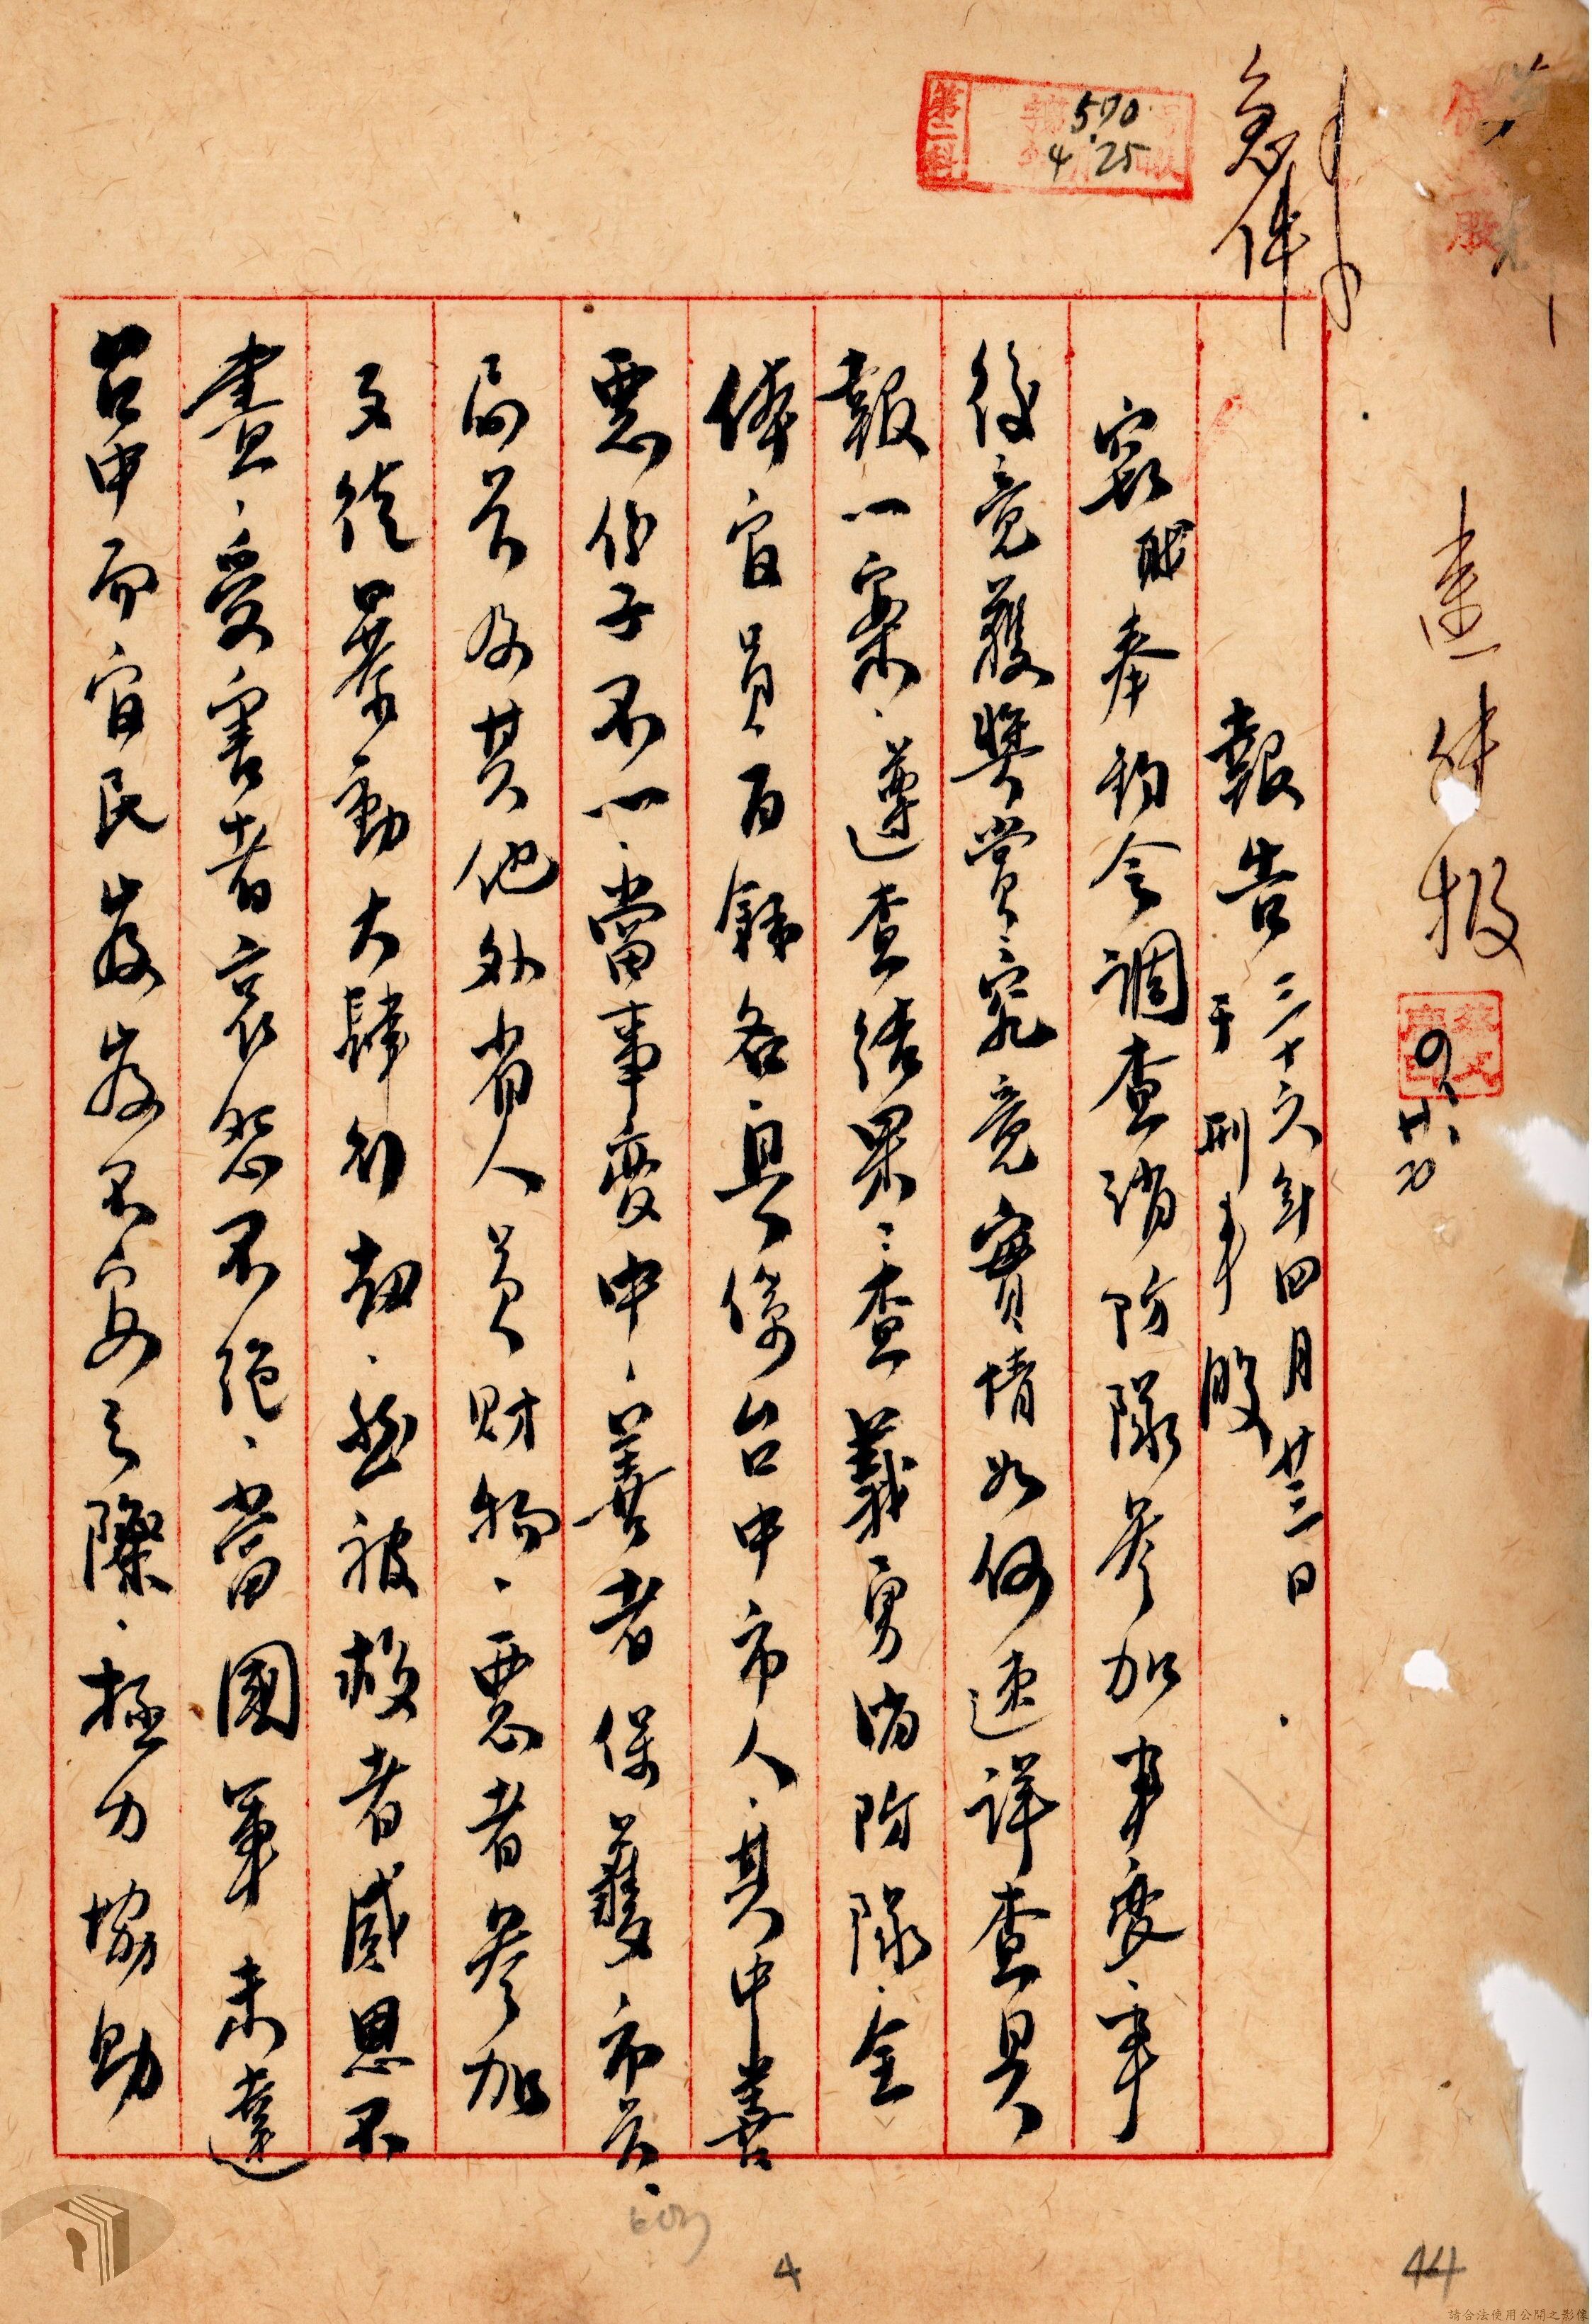 急件
570
4.25
第二科
報告 三十六年四月廿三日
于刑事股
竊職奉鈞令調查消防隊參加事變、事
後竟獲獎賞、究竟實情如何速詳查具
報一案、遵查結果：查義勇消防隊、全
体官員百餘名、具係台中市人、其中善
惡份子不一、當事變中、善者保護市長、
局長及其他外省人員財物、惡者參加
歹徒暴動大肆行劫、然被救者感恩不
盡、受害者哀怨不絕、當國軍未達
台中而官民岌岌不安之際、極力協助
4
44
請合法使用公開之影像